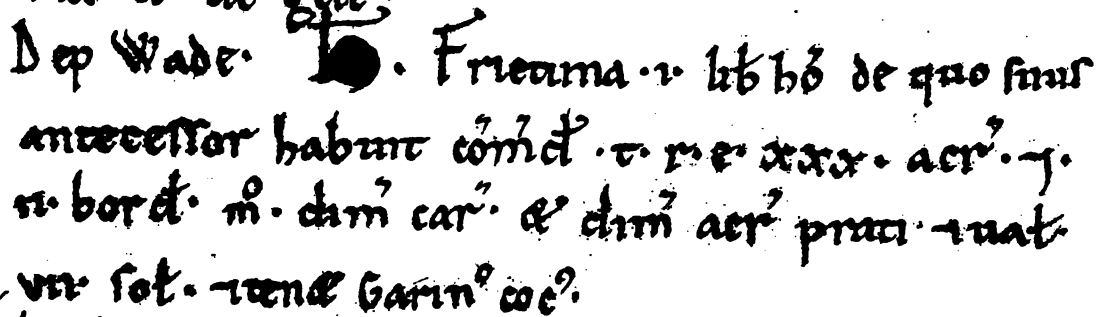 Dep Wade. H. Frietuna .i. lib̄ hō de quo suus
antecessor habuit cōm̄d̄ .t. r. e. xxx. acr̄. ⁊.
ii. bord̄. m̊. dim̄ car̄. & dim̄ acr̄ prati ⁊ ual̄.
vii. sol̄. ⁊ ten& Garin⁹ coc⁹.